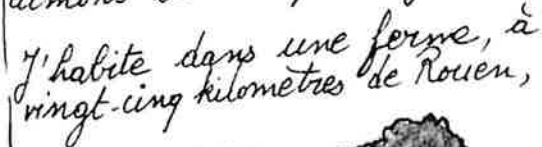 J'habite dans une ferme, à
vingt-cinq kilomètres de Rouen,